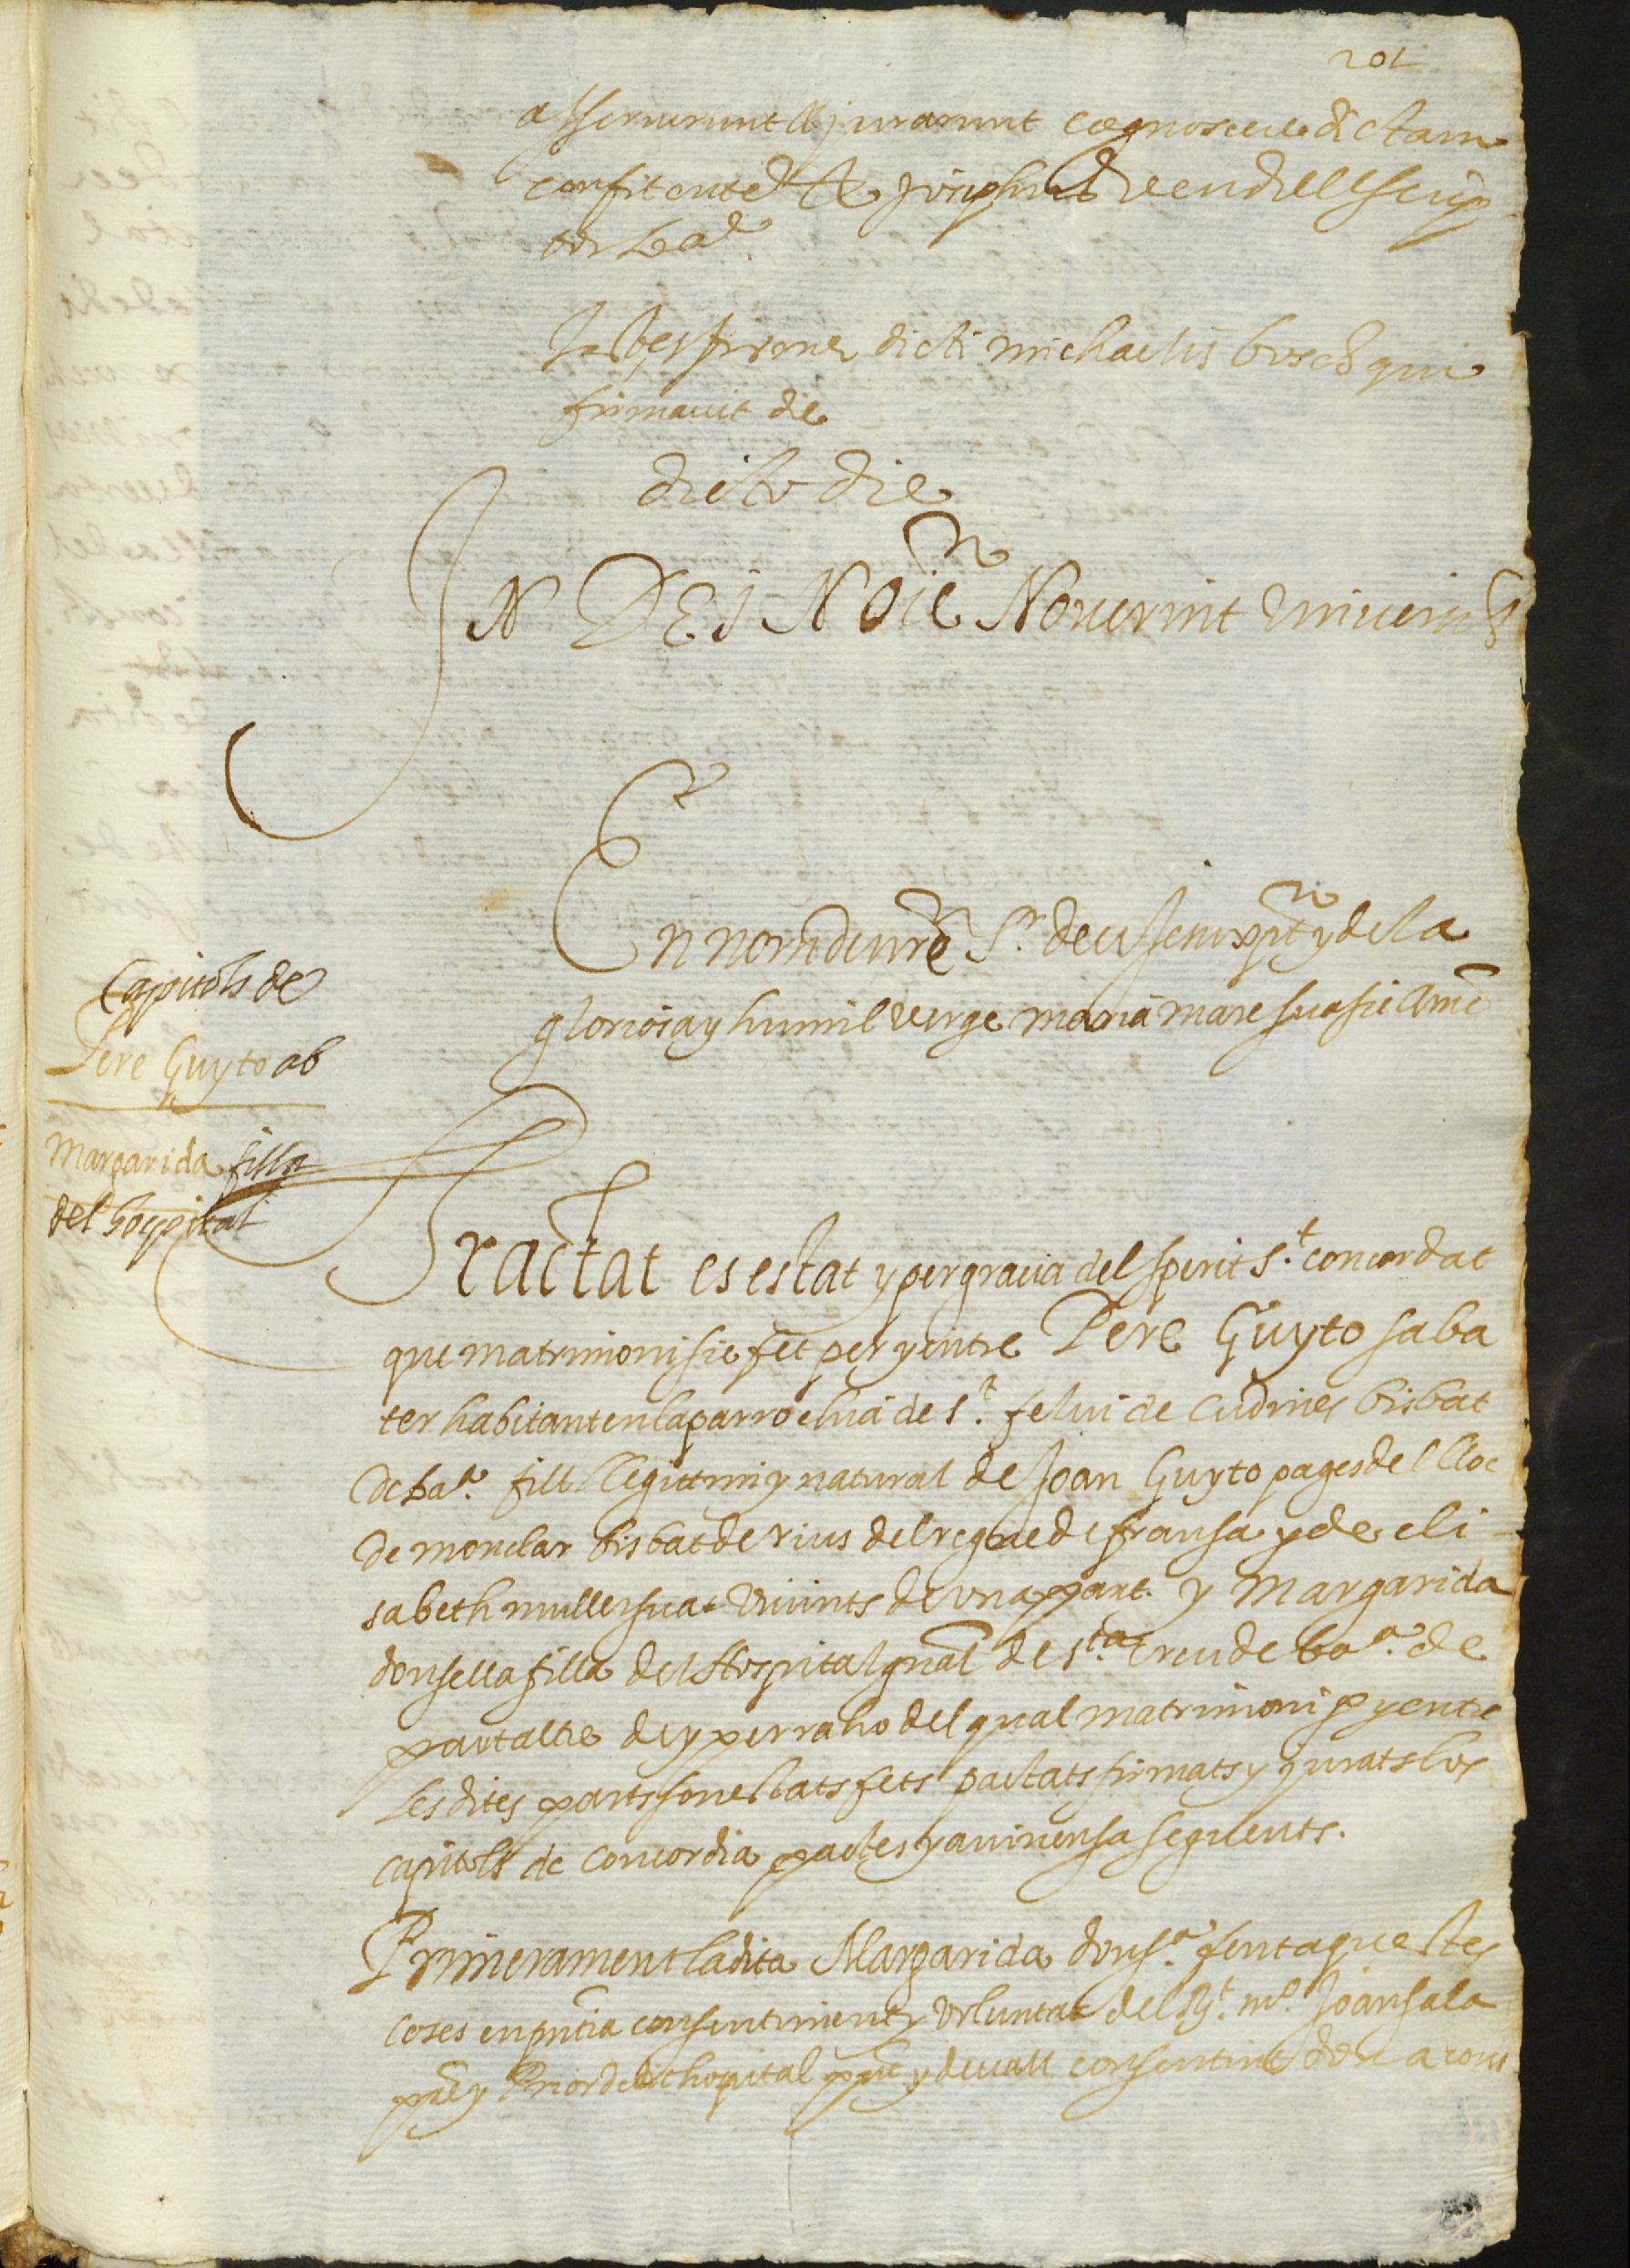 201
asseruerunt & jurarunt cognoscere dictam
confitentem & Josephus Vendrell scrip
tor Bar.
Testes firme dicti michaelis bosch qui
firmauit die
dicto die
IN DEI Noie Nouerint Vniuersi
En nom de nre Sr. deu Jesuxpt y de la
gloriosa y humil verge maria mare sua sie Ame
Capitols de
Pere Guyto ab
Margarida filla
del hospital
Tractat es estat y per gracia del sperit St. concordat
que matrimoni sie fet per y entre Pere Guyto saba
ter habitant en la parrochia de St. feliu de Cudines bisbat
de Bara. fill llegittim y natural de Joan Guyto pages del lloc
de monclar bisbat de rius del regne de fransa y de eli-
sabeth muller sua vivints de vna part. y Margarida
donsella filla del Hospital gnal de Sta. Creu de bara. de
part altre de y per raho del qual matrimoni p y entre
les dites parts son estats fets pactats firmats y jurats los
capitols de concordia pactes y auinensa seguents.
Primerament la dita Margarida donsa. fent aquestes
coses en pntia consentiment y voluntat del Rt. mo. Joan sala
pre y Prior de dit hospital pnt y devall consentint done a cons